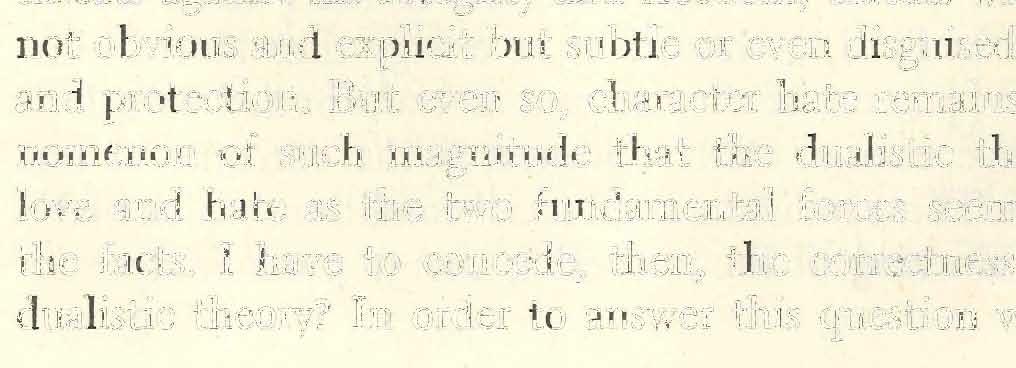 not obvious and explicit but subtle or even disguised
and protection. But even so, character hate remains
nomenon of such magnitude that the dualistic th
love and hate as the two fundamental forces seem
the facts. I have to concede, then, the correctness
dualistic theory? In order to answer this question